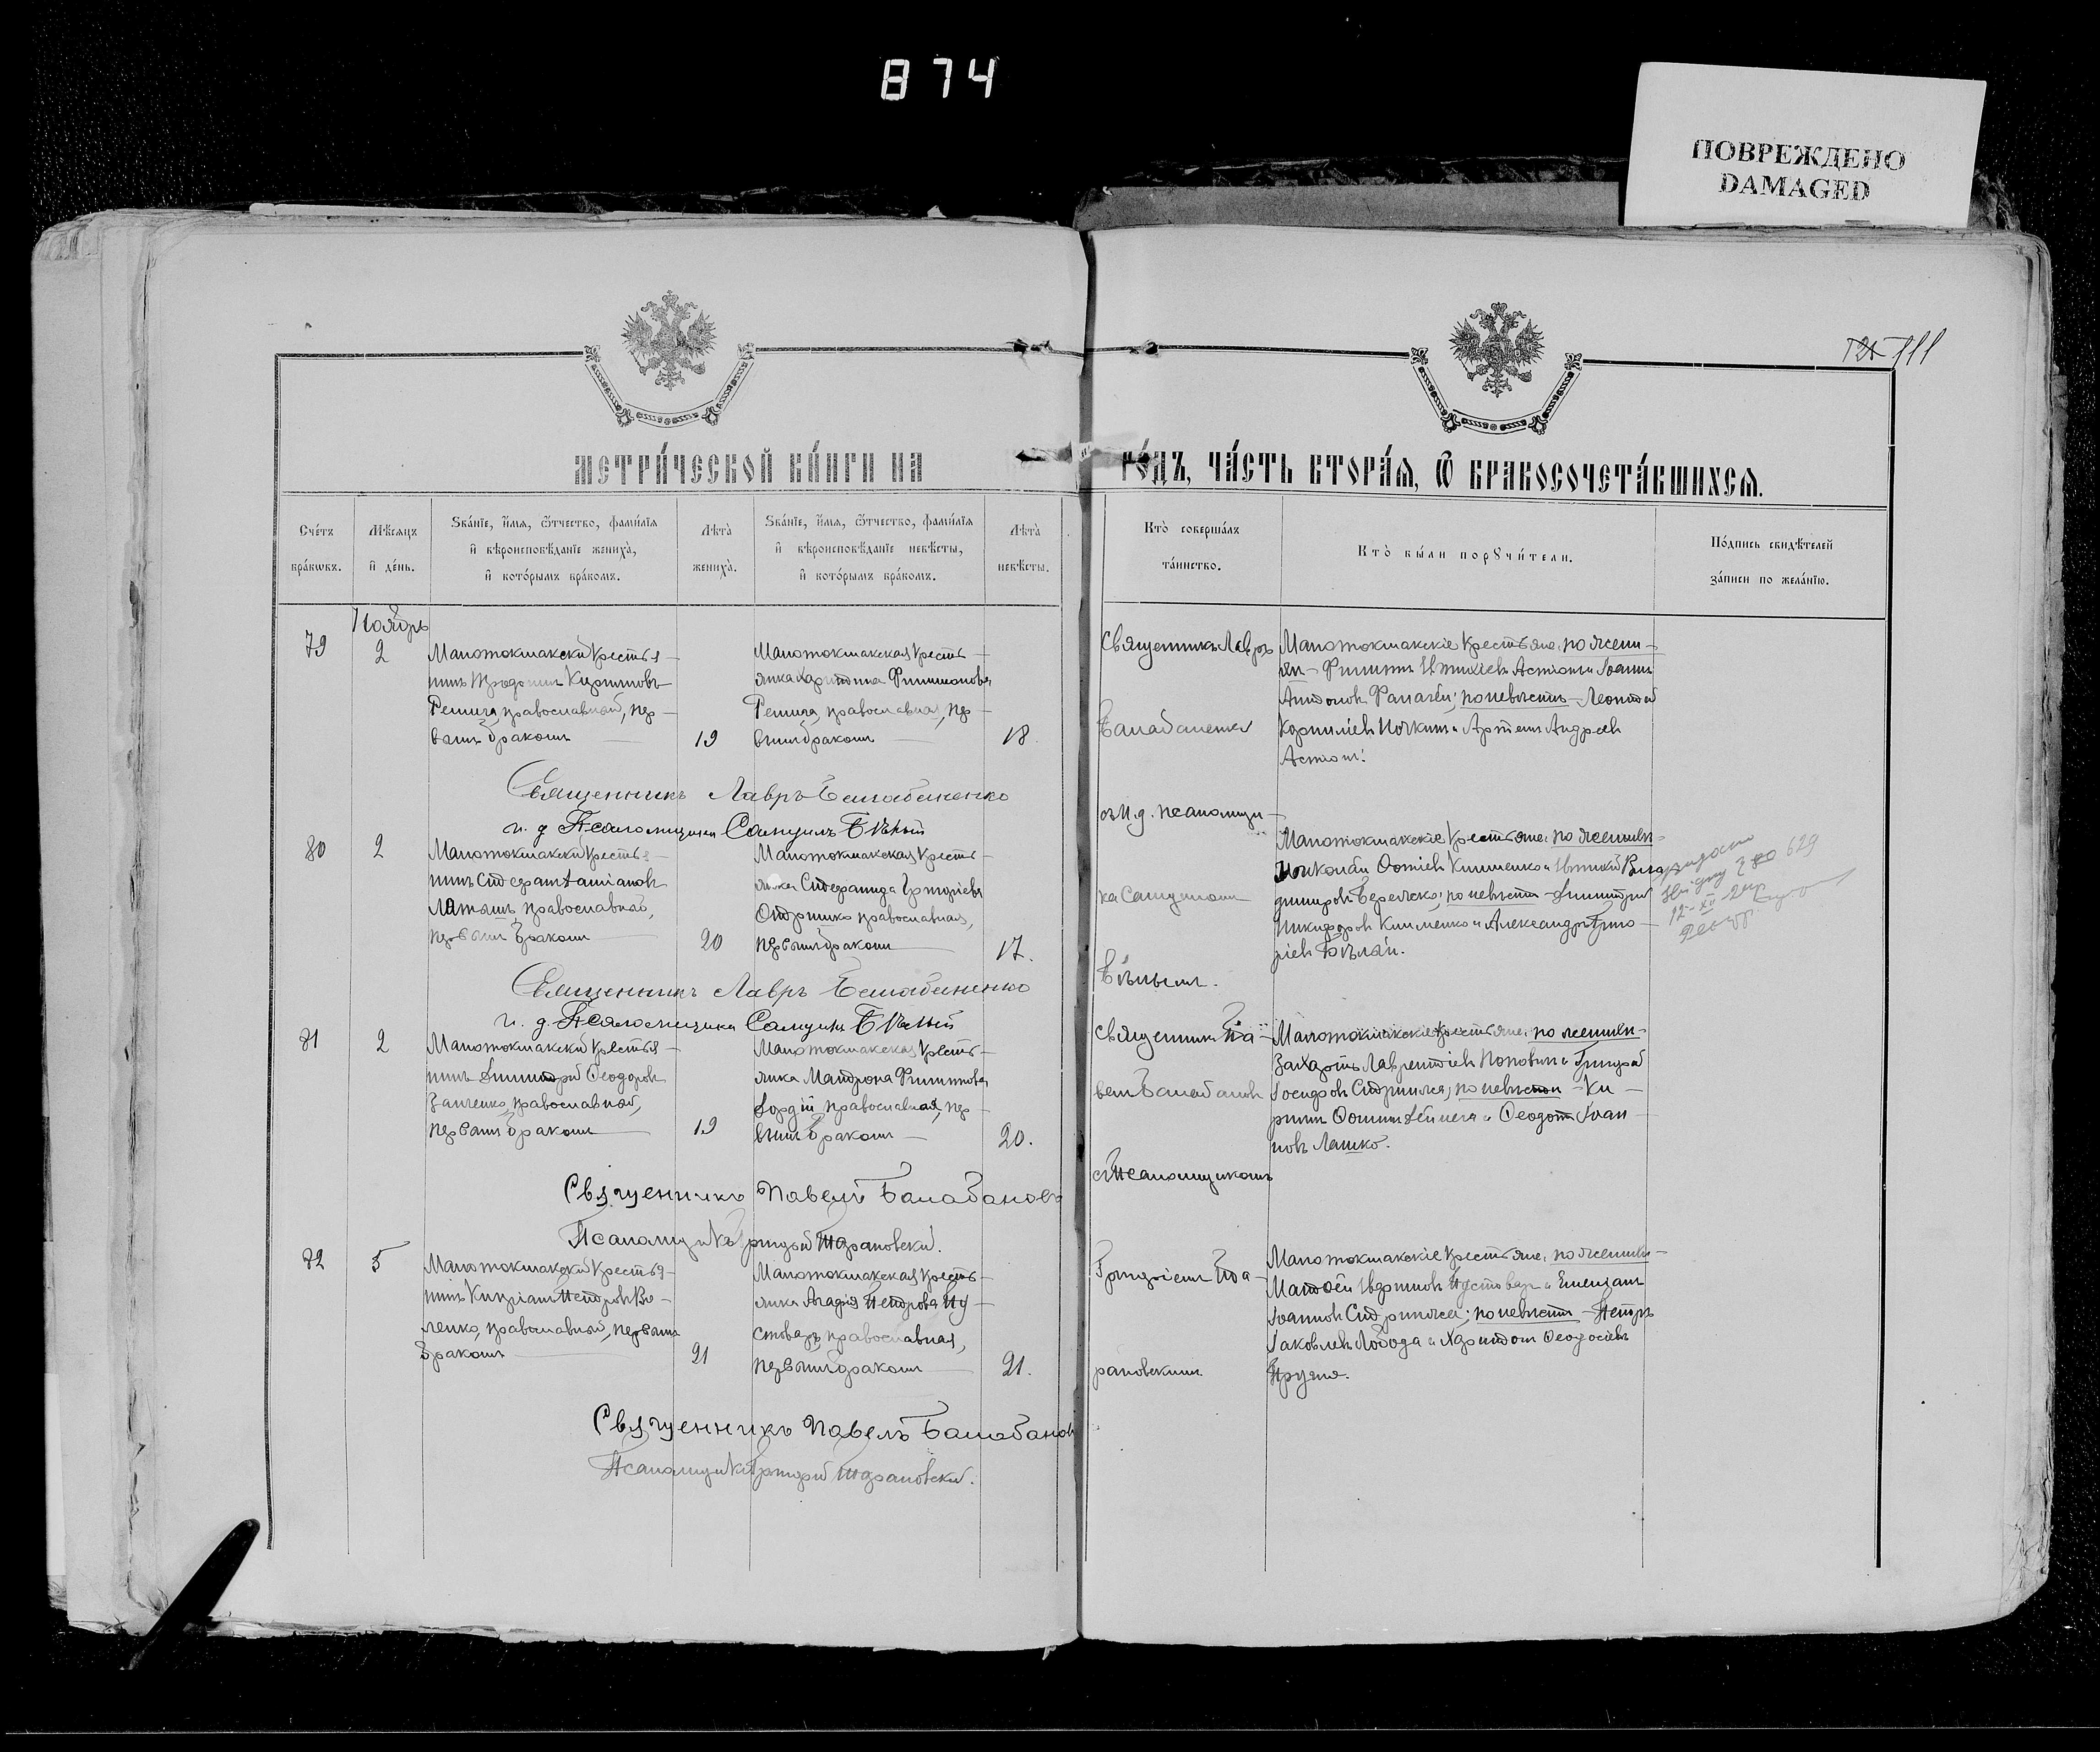 874
ПОВРЕЖДЕНО
DAMAGED
121 111
МЕТРИ́ЧЕСКОЙ КНИ́ГИ НА
ГО́ДЪ, ЧА́СТЬ ВТОРА́Ѧ, Ѿ БРАКОСОЧЕТА́ВШИХСѦ.
Сче́тъ бра́кѡвъ.
Мѣ́сѧцъ и҆ де́нь.
Ѕва́нїе, и҆́мѧ, ѻ҆́тчество, фами́лїѧ
и҆ вѣроисповѣ́данїе жениха̀,
и҆ кото́рымъ бра́комъ.
Лѣта̀ жениха̀.
Ѕва́нїе, и҆́мѧ, ѻ҆́тчество, фами́лїѧ
и҆ вѣроисповѣ́данїе невѣ́сты,
и҆ кото́рымъ бра́комъ.
Лѣта̀ невѣ́сты.
Кто̀ соверша́лъ та́инство.
Кто̀ бы́ли порꙋчи́тели.
По́дпись свидѣ́телей за́писи по жела́нїю.
Ноябрь
79
2
Малотокмакскій крестья-
нинъ Кирилловъ
Репига, православный, пер-
вымъ бракомъ
19
Малотокмакская кресть-
янка Харитина Филимонова
Репига, православная, пер-
вымъ бракомъ
18
Священникъ Лавръ
Балабаненко
Малотокмакскіе крестьяне: по жени-
хѣ - Филиппъ Астіонъ и Іоаннъ
Антоновъ по невѣстѣ - Леонтій
Корниліевъ и Артемъ Андреевъ
Астіонъ.
Священникъ Лавръ Балабаненко
и. д. Псаломщика Самуилъ Бѣлый
80
2
Малотокмакскій крестья-
нинъ Серафимъ Даміановъ
Латышъ, православный,
первымъ бракомъ
20
Малотокмакская кресть-
янка Григоріева
православная,
первымъ бракомъ
17.
съ и. д. псаломщи-
ка Самуиломъ
Бѣлымъ.
Малотокмакскіе крестьяне: по женихѣ-
Николай Фотіевъ Клименко и
по невѣстѣ - Димитрій
Никифоровъ Клименко и Александръ Григо-
ріевъ Бѣлый.
629
Священникъ Лавръ Балабаненко
и. д. Псаломщика Самуилъ Бѣлый
81
2
Малотокмакскій крестья-
нинъ Димитрій Ѳеодоровъ
Занченко, православный,
первымъ бракомъ
19
Малотокмакская кресть-
янка Матрона Филиппова
Гордій, православная, пер-
вымъ бракомъ
20.
Священникъ Па-
велъ Балабановъ
съ Псаломщикомъ
Малотокмакскіе крестьяне: по женихѣ-
Захарій Лаврентіевъ Поповичъ и Григорій
по невѣстѣ - Ки-
риллъ Ѳоминъ и Ѳеодотъ Іоан-
новъ Лашко.
Священникъ Павелъ Балабановъ
Псаломщикъ Григорій Тарановскій.
82
5
Малотокмакскій крестья-
нинъ Кипріанъ Петровъ Во-
ленко, православный, первымъ
бракомъ
21
Малотокмакская кресть-
янка Агафія Петрова Пу-
стоваръ, православная,
первымъ бракомъ
21.
Григоріемъ Та-
рановскимъ.
Малотокмакскіе крестьяне: по женихѣ-
Матѳей Пустоваръ и Емеліанъ
Іоанновъ по невѣстѣ - Петръ
Іаковлевъ Лобода и Харитонъ Ѳеодосіевъ
Священникъ Павелъ Балабановъ
Псаломщикъ Григорій Тарановскій.